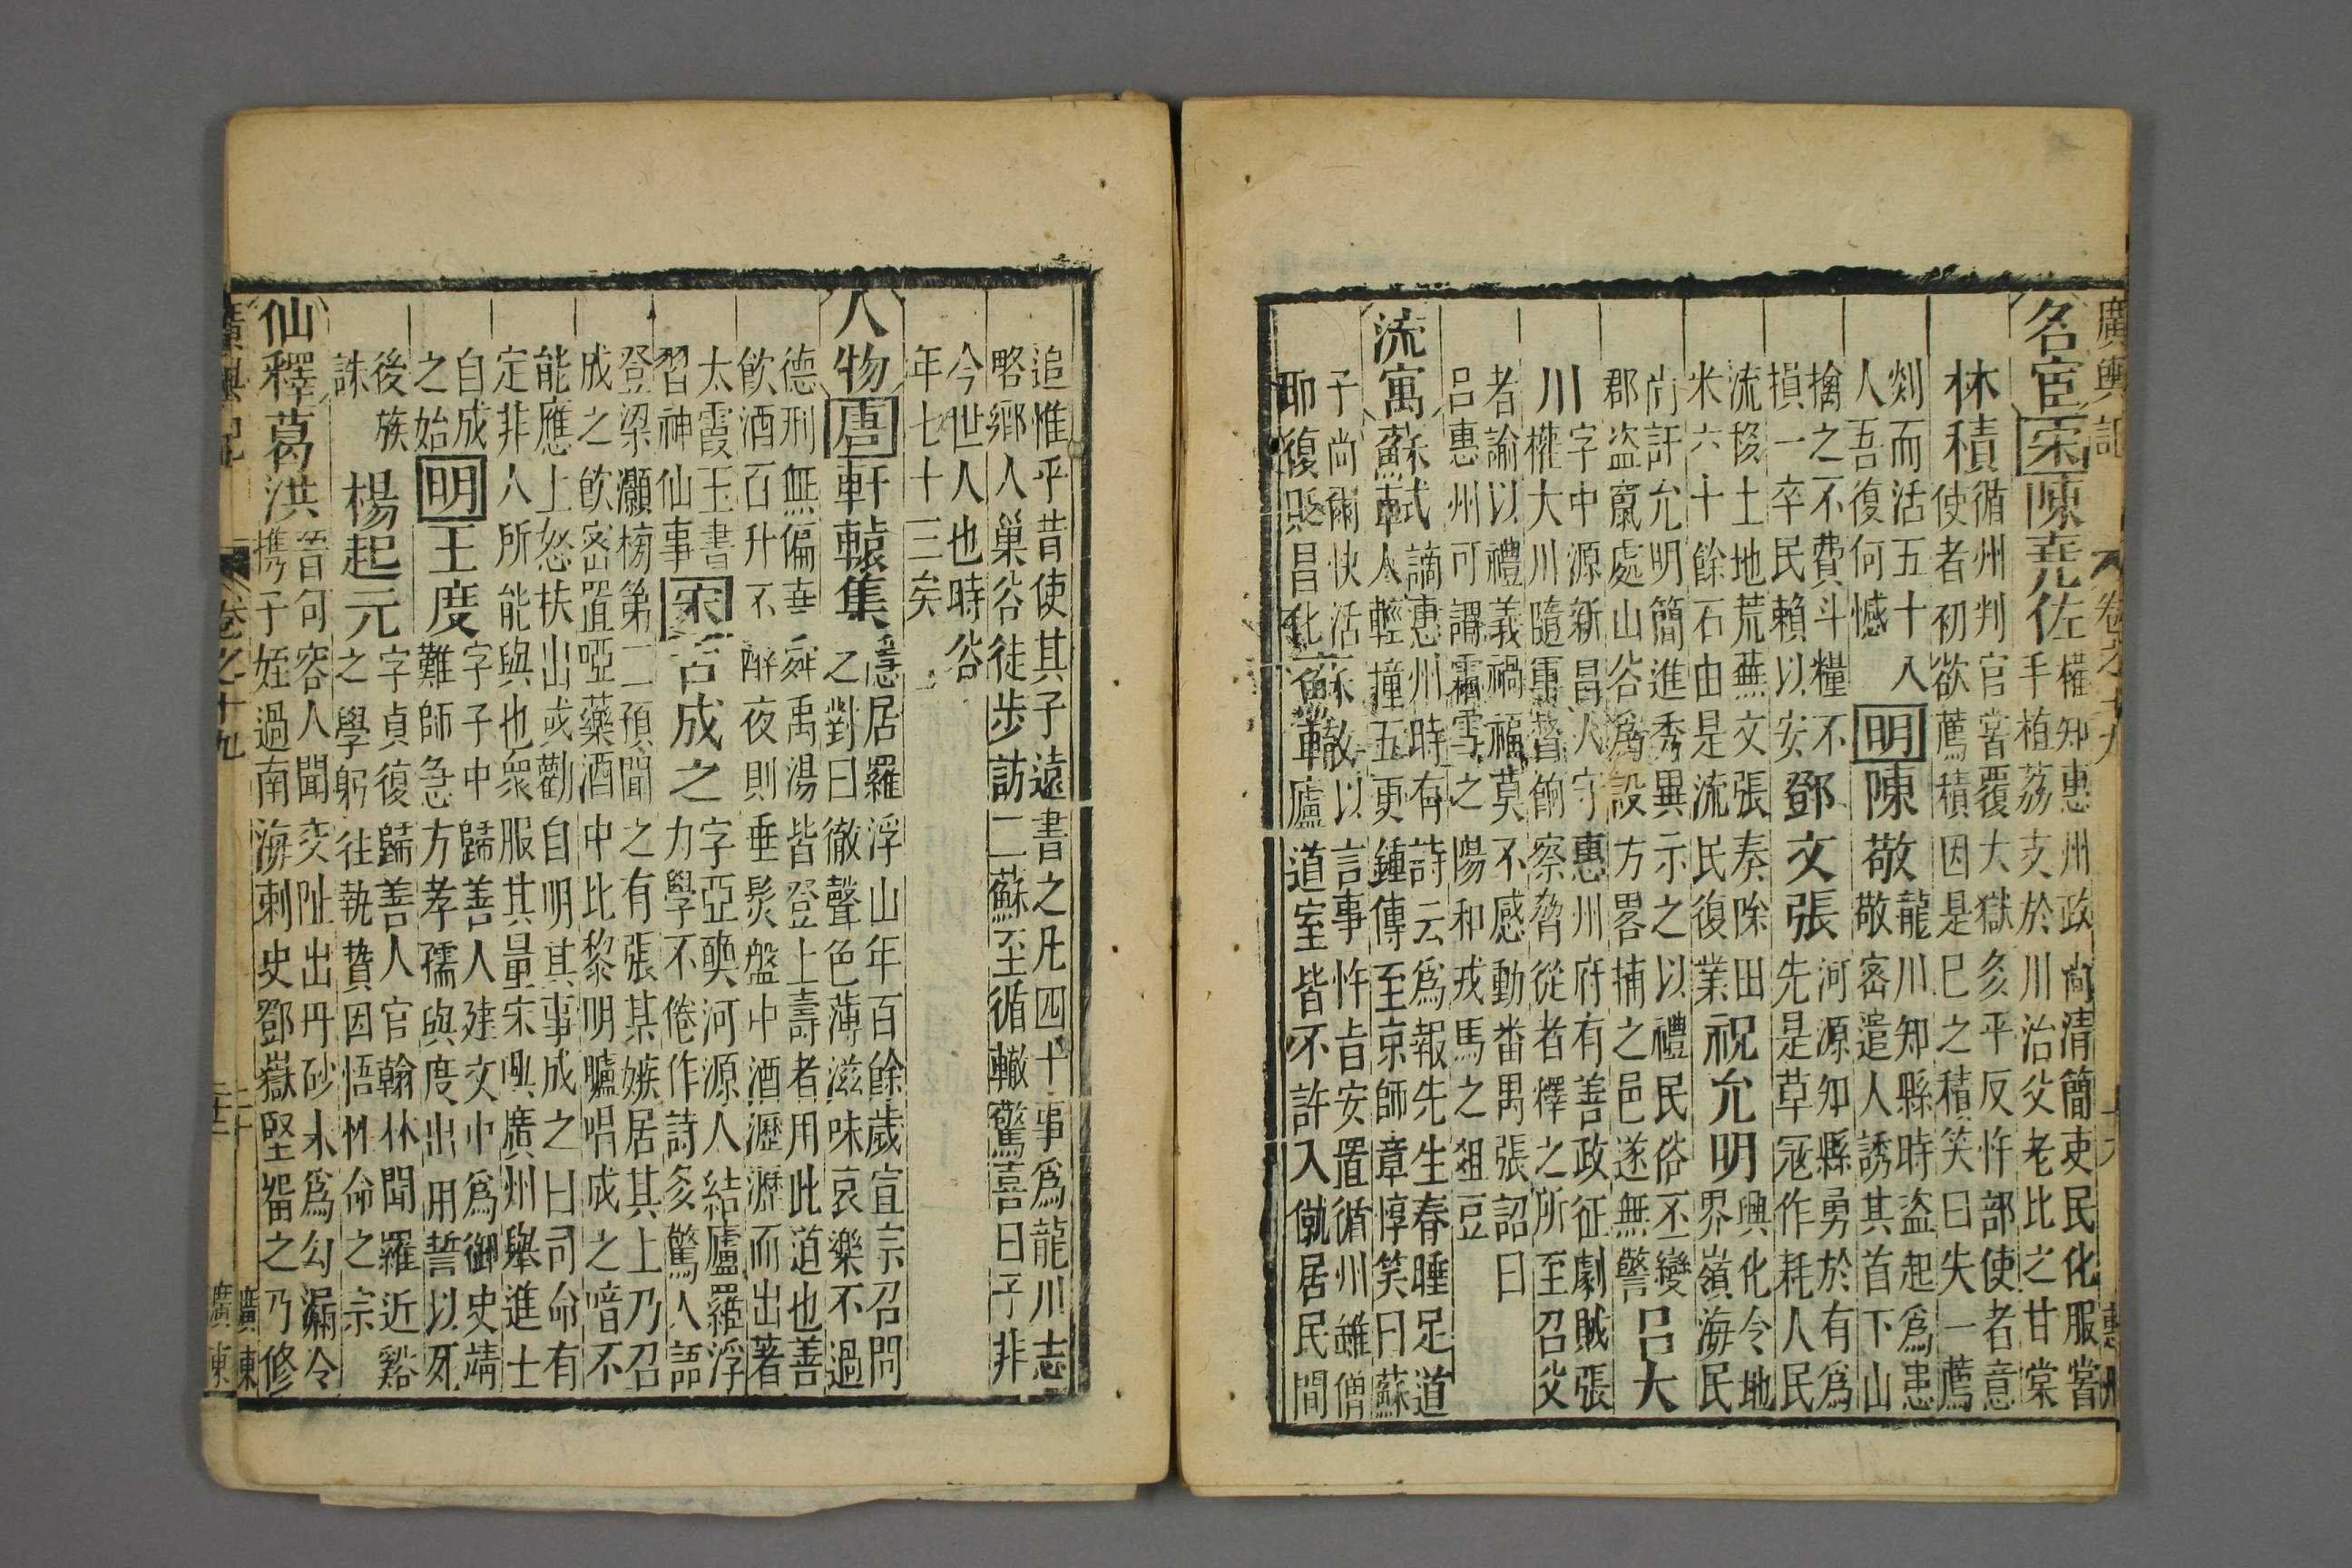 廣輿記 卷之十九 十九 惠州
名宦 宋 陳堯佐
權知惠州政尚清簡吏民化服嘗
手植荔支於川治父老比之甘棠
林積
循州判官嘗覆大獄多平反忤部使者意
使者初欲薦積因是已之積笑曰失一薦
剡而活五十人
人吾復何憾
明 陳敬
龍川知縣時盜起爲患
敬密遣人誘其首下山
擒之不費斗糧不
損一卒民賴以安
鄧文張
河源知縣勇於有爲
先是草寇作耗人民
流移土地荒蕪文張奏除田
米六十餘石由是流民復業
祝允明
興化令地
界嶺海民
尚訐允明簡進秀異示之以禮民俗丕變
郡盜竄處山谷爲設方畧捕之邑遂無警
呂大
川
字中源新昌人守惠州府有善政征劇賊張
權大川隨軍督餉察脅從者釋之所至召父
者諭以禮義禍福莫不感動番禺張詔曰
呂惠州可謂霜雪之陽和戎馬之俎豆
流寓 蘇軾
謫惠州時有詩云爲報先生春睡足道
人輕撞五更鐘傳至京師章惇笑曰蘇
子尚爾快活
耶復貶昌化
蘇轍
以言事忤旨安置循州雖僧
廬道室皆不許入僦居民間
追惟平昔使其子遠書之凡四十事爲龍川志
略鄉人巢谷徒步訪二蘇至循轍驚喜曰子非
今世人也時谷
年七十三矣
人物 唐 軒轅集
隱居羅浮山年百餘歲宣宗召問
之對曰徹聲色薄滋味哀樂不過
德刑無偏堯舜禹湯皆登上壽者用此道也善
飲酒百升不醉夜則垂髮盤中酒瀝瀝而出著
太霞玉書
習神仙事
宋 古成之
字亞奭河源人結廬羅浮
力學不倦作詩多驚人語
登梁灝榜第二預聞之有張某嫉居其上乃召
成之飲密置啞藥酒中比黎明臚唱成之喑不
能應上怒扶出或勸自明其事成之曰司命有
定非人所能與也衆服其量宋興廣州舉進士
自成
之始
明 王度
字子中歸善人建文中爲御史靖
難師急方孝孺與度出用誓以死
後族
誅
楊起元
字貞復歸善人官翰林聞羅近谿
之學躬往執贄因悟性命之宗
仙釋 葛洪
晉句容人聞交阯出丹砂求爲勾漏令
携子姪過南海刺史鄧嶽堅留之乃修
廣輿記 卷之十九 二十 廣東